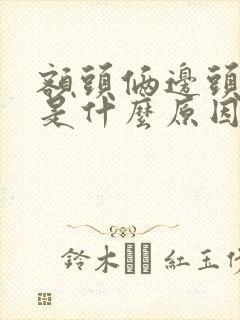 額頭俩邊頭
是什麼原因
鈴木 紅玉